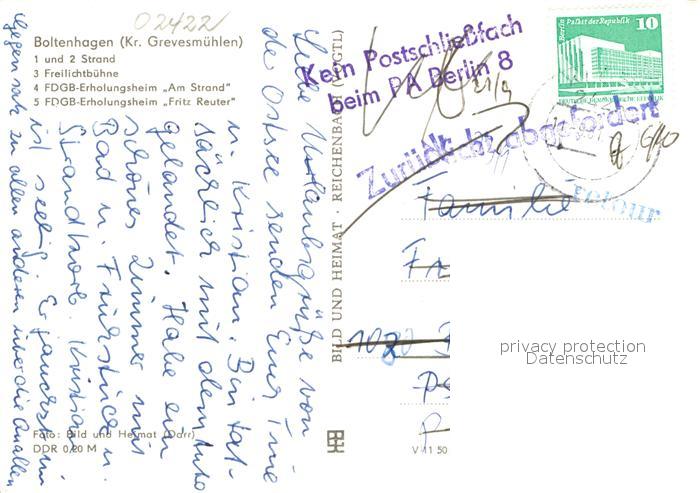 02422
Boltenhagen (Kr. Grevesmühlen)
1 und 2 Strand
3 Freilichtbühne
4 FDGB-Erholungsheim „Am Strand"
5 FDGB-Erholungsheim „Fritz Reuter"
Liebe Urlaubsgrüße von
der Ostsee senden Euch Ine
u. Kristian. Bin tat-
sächlich mit dem Auto
gelandet. Habe ein
schönes Zimmer mit
Bad u. Frühstück u.
Strandkorb. Kristian
ist seelig. Er jauchzt im
Gegensatz zu allen anderen über die Quallen
Foto: Bild und Heimat (Darr)
DDR 0,20 M
BILD UND HEIMAT · REICHENBACH (VOGTL)
V 11 50
Kein Postschließfach
beim PA Berlin 8
Zurück
abgefordert
Retour
Berlin Palast der Republik
10
DEUTSCHE DEMOKRATISCHE REPUBLIK
Familie
1080
privacy protection
Datenschutz